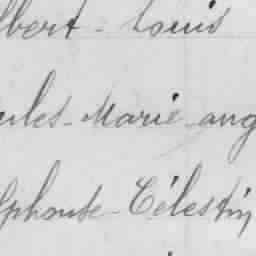 lbert - Louis
ules - Marie - ang
lphonse - Célestin